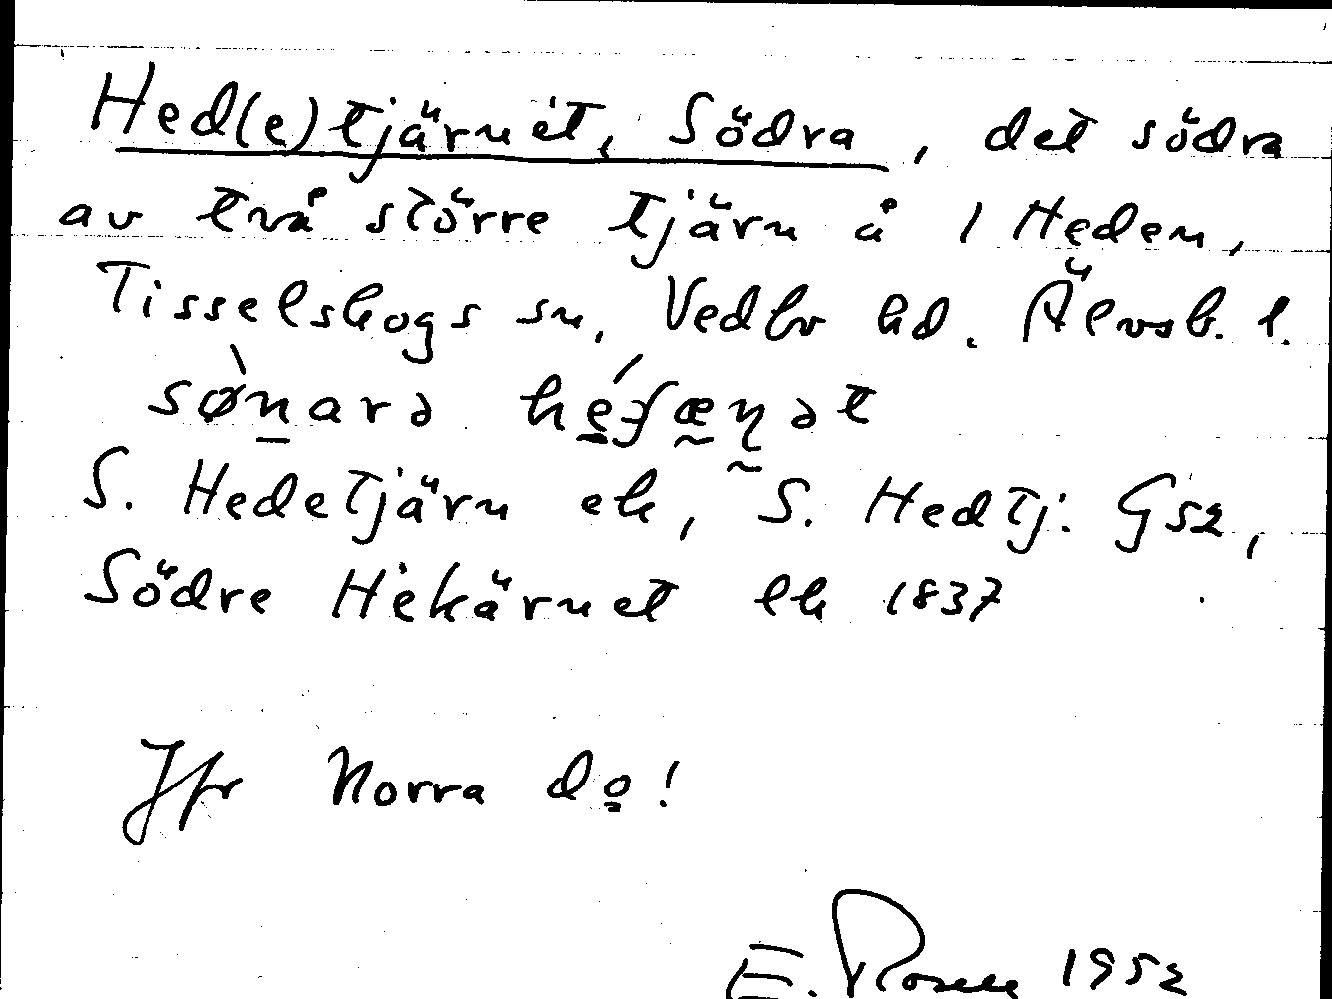 Hed(e)tjärnet, Södra, det södra
av två större tjärn å 1 Heden,
Tisselskogs sn, Vedbo hd. Älvsb. l.
S. Hedetjärn ek, S. Hedtj. GS2,
Södre Hekärnet lk 1837
Jfr Norra do!
E. Rosell 1952